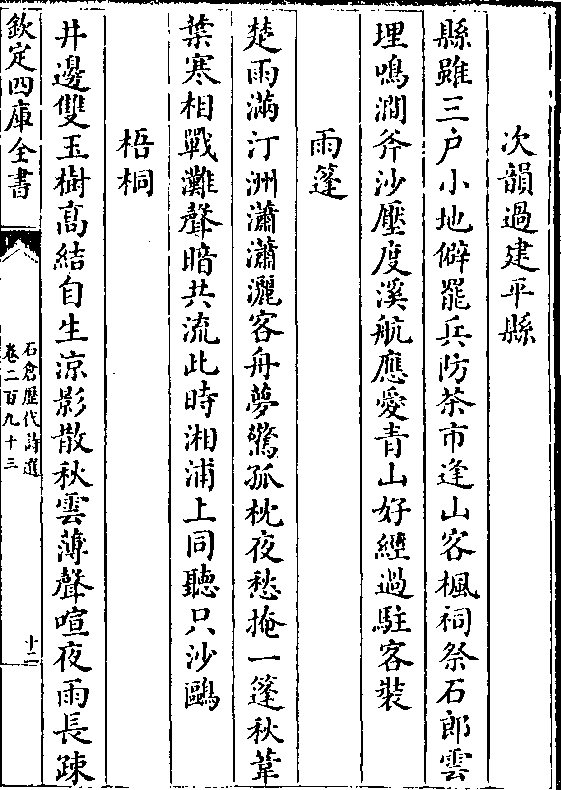 次韻過建平縣
縣雖三户小地僻罷兵防茶市逢山客楓祠祭石郎雲
埋鳴澗斧沙壓度溪航應愛青山好經過駐客裝
雨篷
楚雨滿汀洲瀟瀟灑客舟夢驚孤枕夜愁掩一篷秋葦
葉寒相戰灘聲暗共流此時湘浦上同聽只沙鷗
梧桐
井邊雙玉樹髙結自生涼影散秋雲薄聲喧夜雨長疎
欽定四庫全書
石倉歷代詩選
卷二百九十三
十二